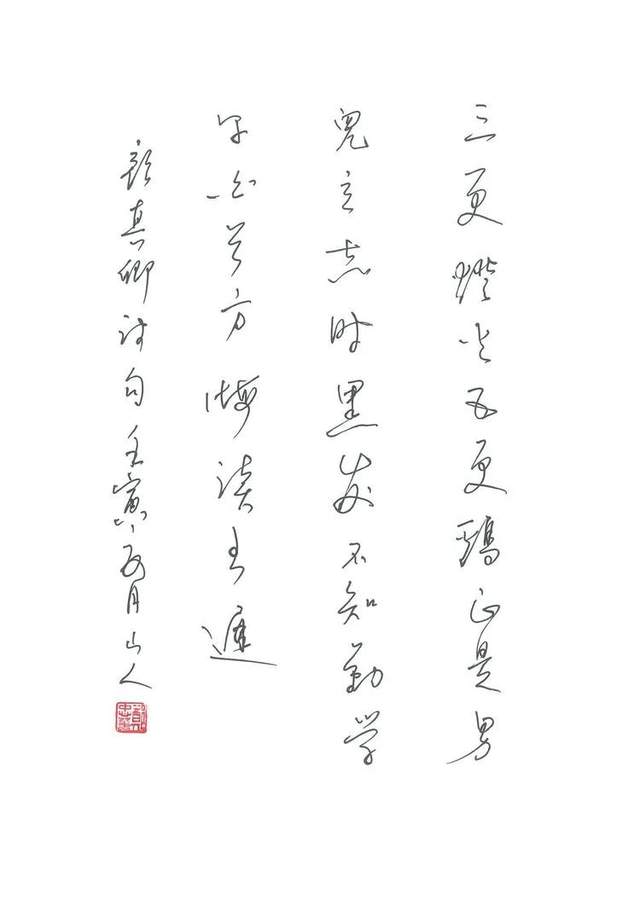 三更燈火五更鷄正是男
兒立志时黑发不知勤学
早白首方悔读书遲
颜真卿诗句壬寅月山人